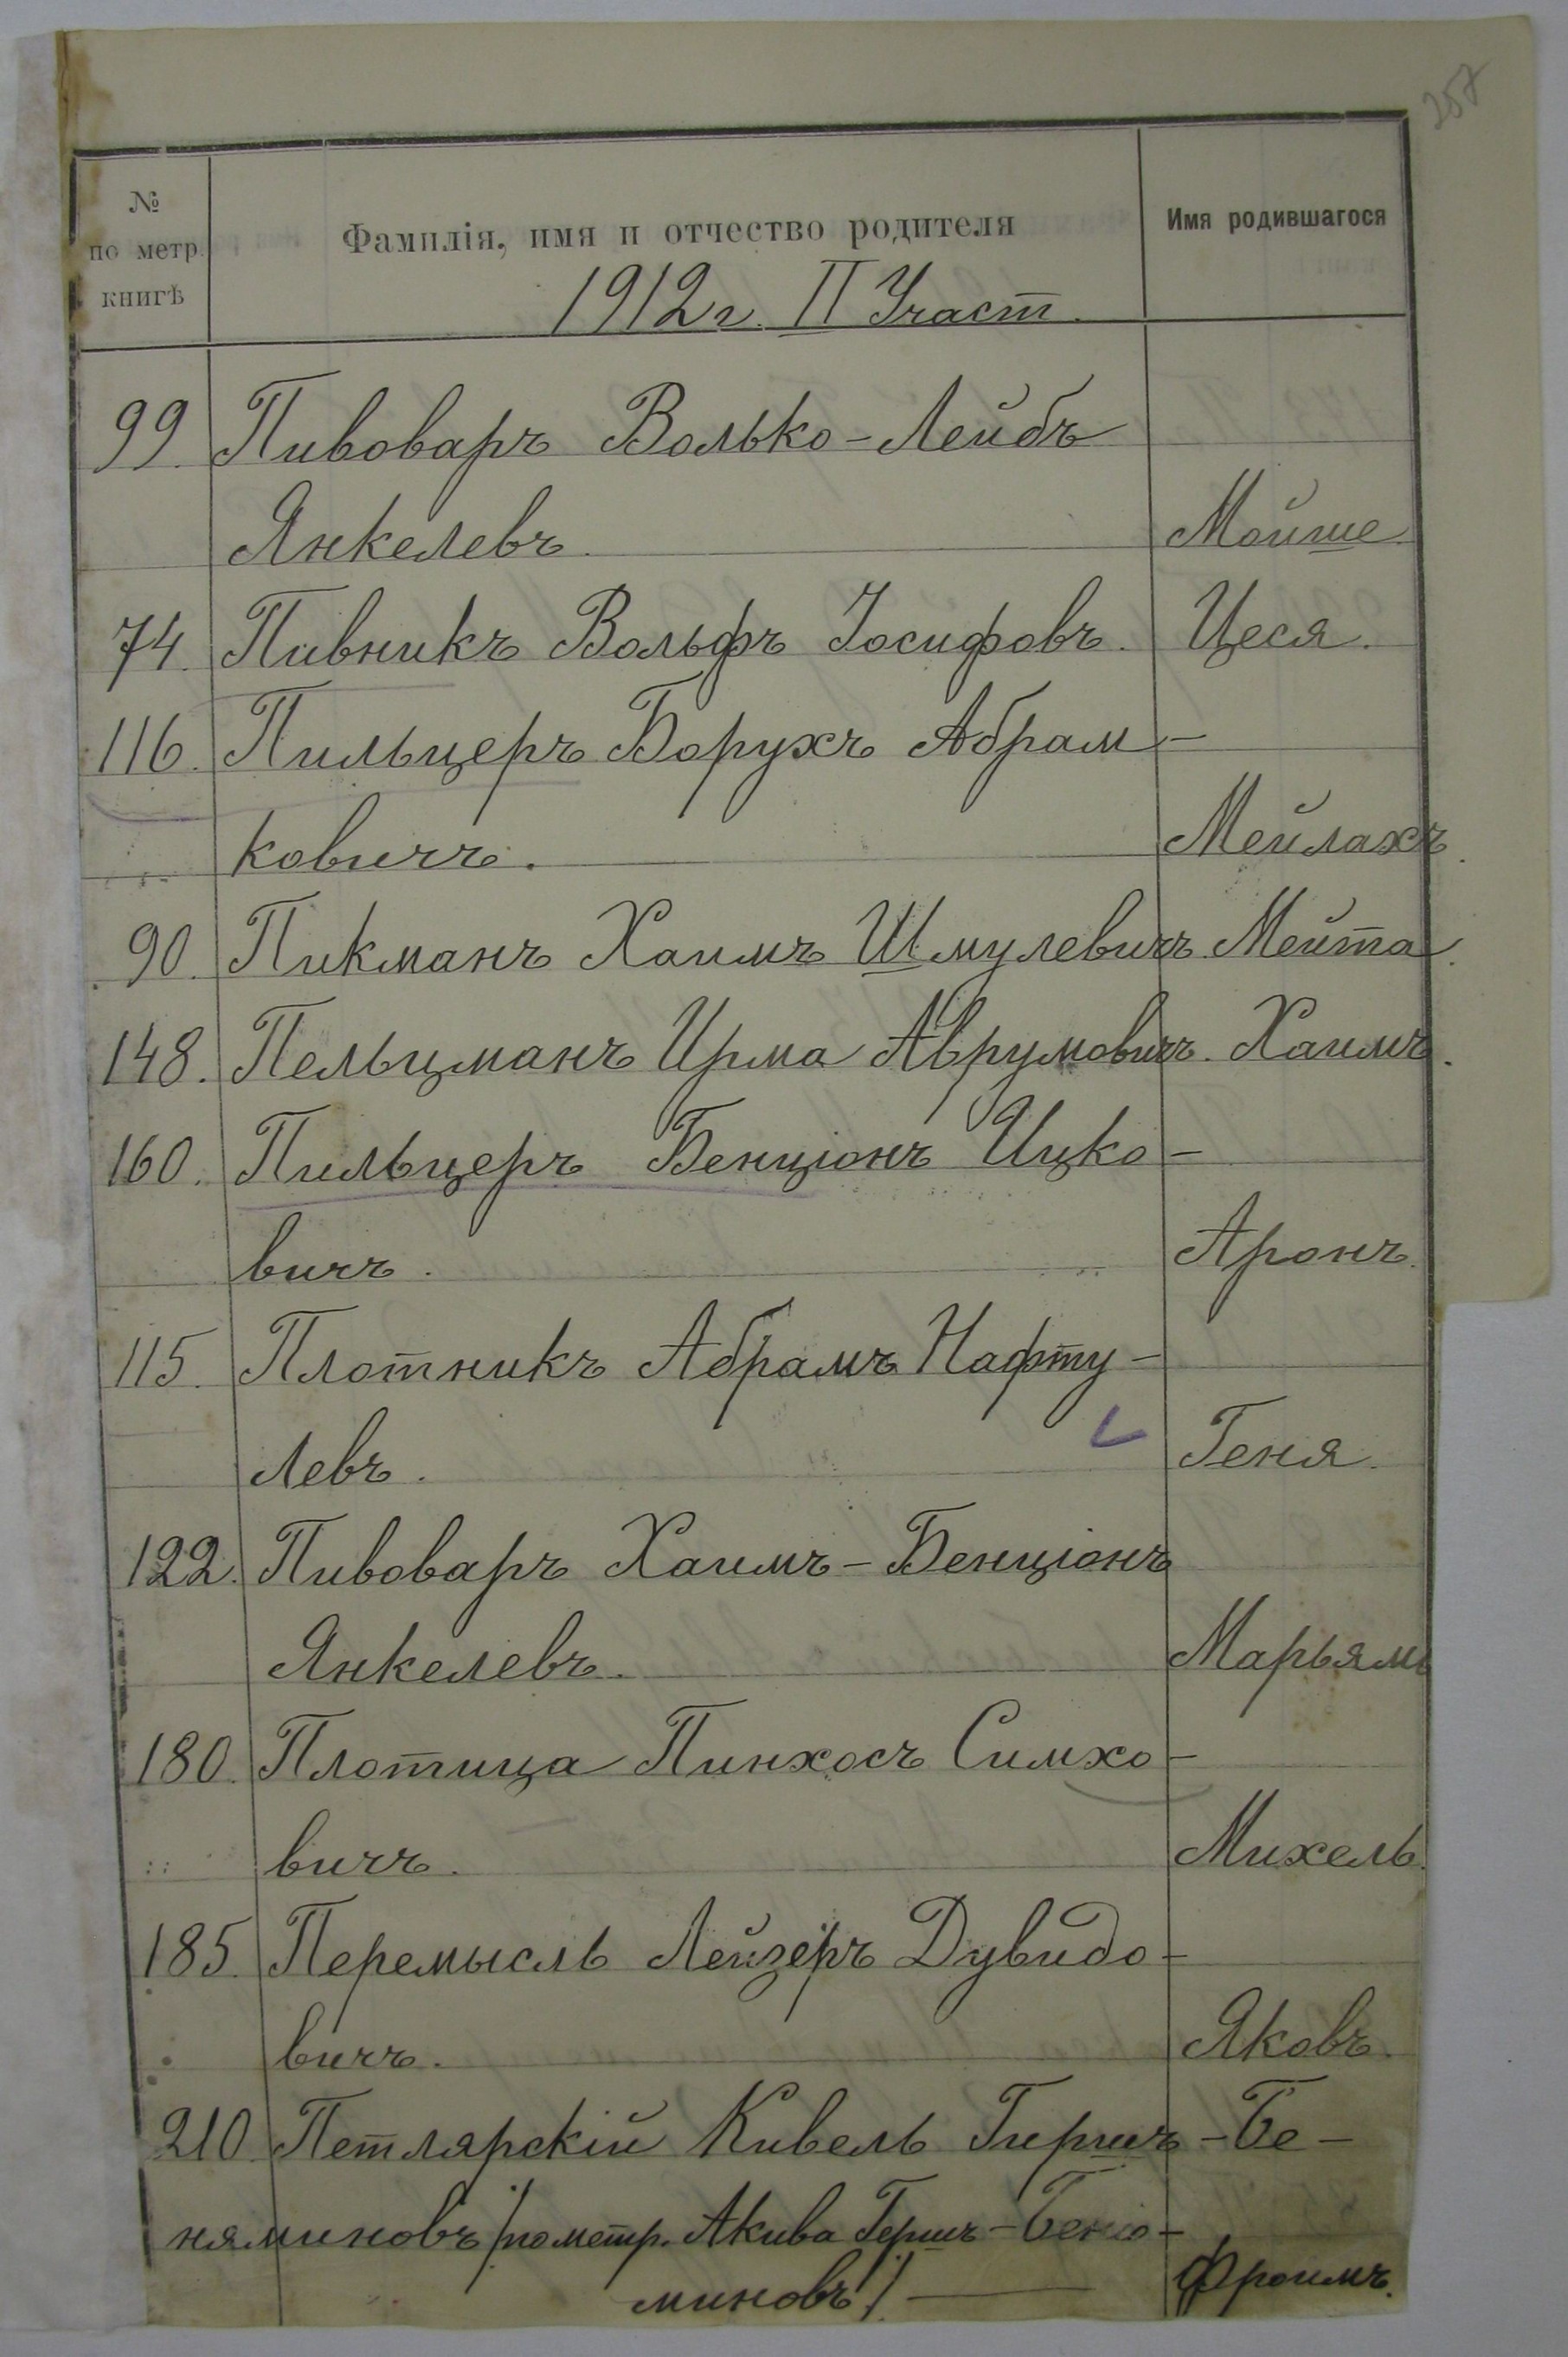 257
№ по метр. книгѣ
Фамилія, имя и отчество родителя
Имя родившагося
1912 г. II Участ.
99. Пивоваръ Волько-Лейбъ
Янкелевъ. Мойше.
74. Пивникъ Вольфъ Іосифовъ. Цеся.
116. Пильцеръ Борухъ Абрам-
ковичъ. Мейлахъ.
90. Пикманъ Хаимъ Шмулевичъ. Мейта.
148. Пельцманъ Ирма Аврумовичъ. Хаимъ.
160. Пильцеръ Бенціонъ Ицко-
вичъ. Аронъ.
115. Плотникъ Абрамъ Нафту-
левъ. Геня.
122. Пивоваръ Хаимъ-Бенціонъ
Янкелевъ. Марьямъ
180. Плотица Пинхосъ Симхо-
вичъ. Михель.
185. Перемысль Лейзеръ Дувидо-
вичъ. Яковъ.
210 Петлярскій Кивель Гиршъ-Бе-
няминовъ /по метр. Акива Гершъ-Беніо-
миновъ/. Фроимъ.